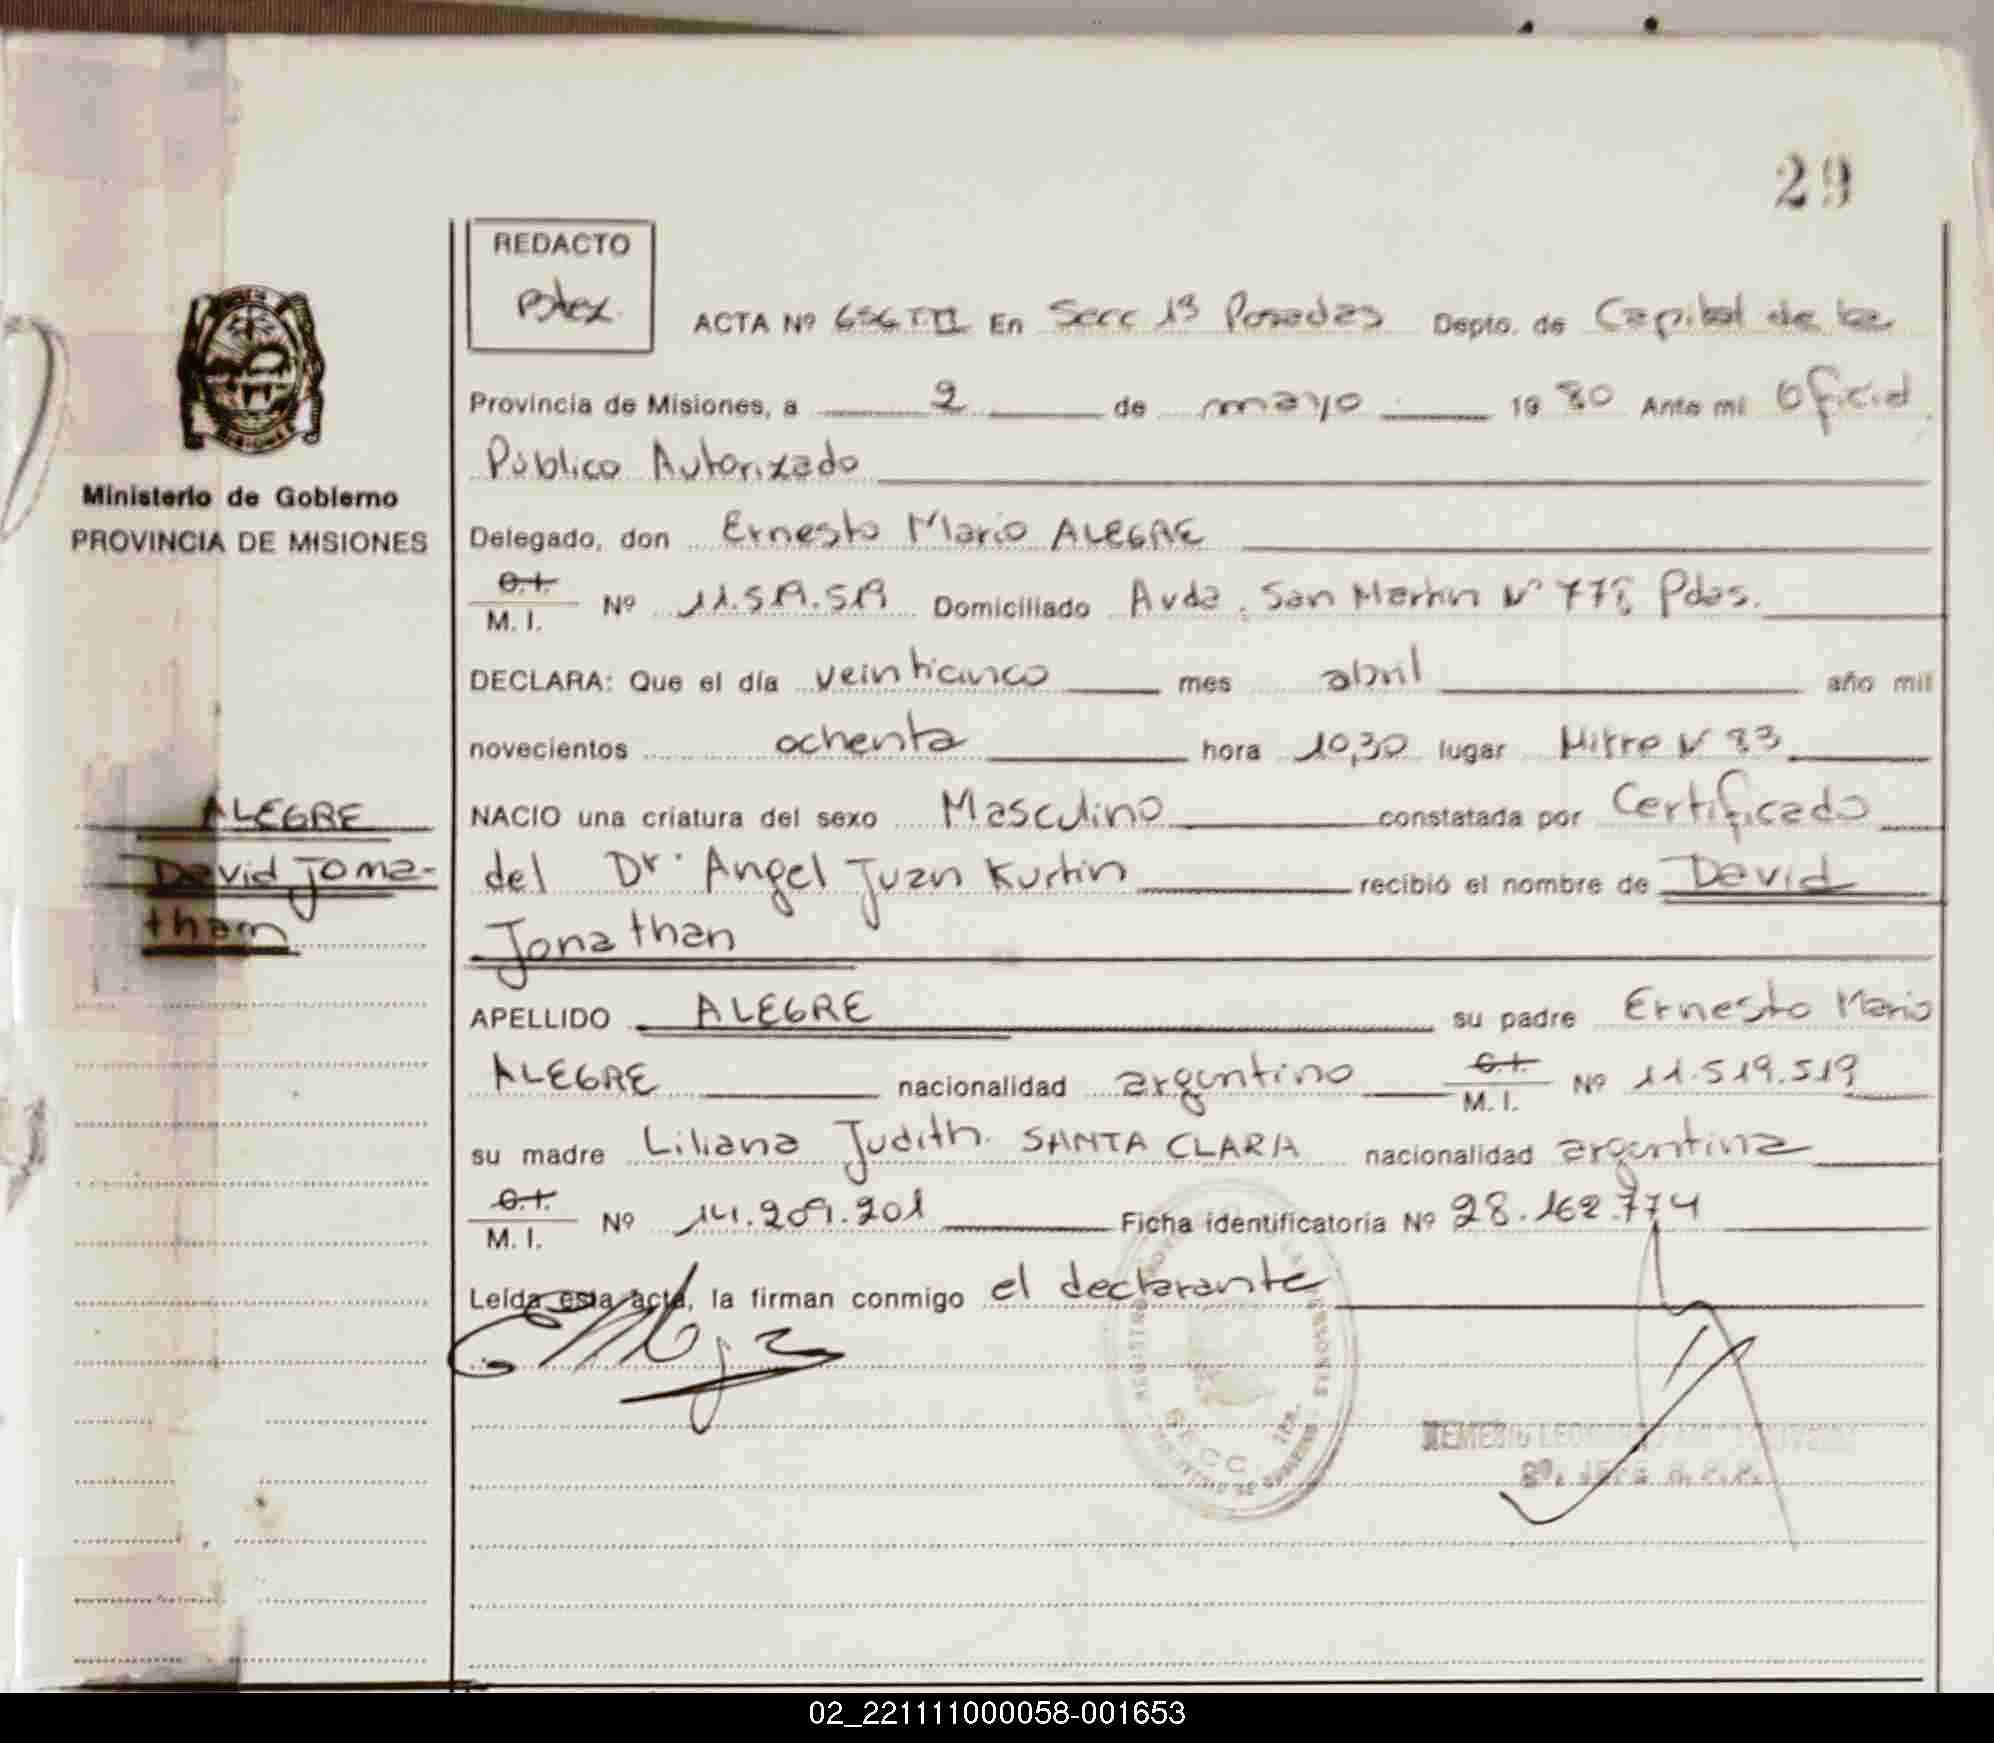 29
REDACTO
ACTA Nº 656 TIII En Secc 1ª Posadas Depto. de Capital de la
Provincia de Misiones, a 2 de mayo 19 80 Ante mi Oficial
Público Autorizado
Ministerio de Gobierno
PROVINCIA DE MISIONES
Delegado, don Ernesto Mario ALEGRE
C.I.
M. I. Nº 11.519.519 Domiciliado Avda. San Martin Nº 778 Pdas.
DECLARA: Que el día veinticinco mes abril año mil
novecientos ochenta hora 10,30 lugar Mitre Nº 83
ALEGRE
David Joma-
than
NACIO una criatura del sexo Masculino constatada por Certificado
del Dr. Angel Juan Kurtin recibió el nombre de David
Jonathan
APELLIDO ALEGRE su padre Ernesto Mario
ALEGRE nacionalidad argentino C.I.
M. I. Nº 11.519.519
su madre Liliana Judith SANTA CLARA nacionalidad argentina
C.I.
M. I. Nº 14.209.201 Ficha identificatoria Nº 28.162.774
Leída esta acta, la firman conmigo el declarante
SECC. 1ra.
02_221111000058-001653